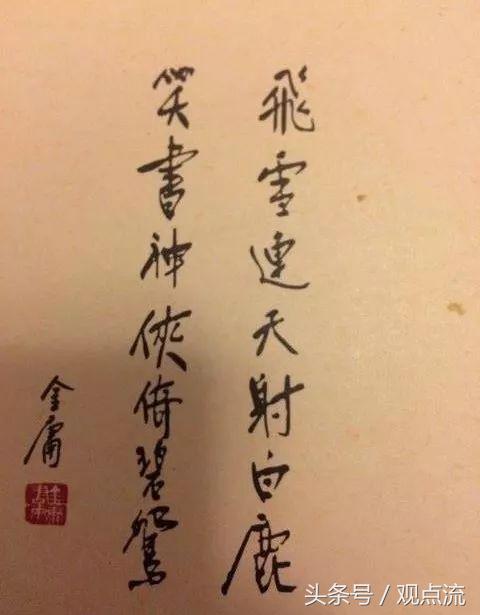 飛雪連天射白鹿
笑書神俠倚碧鴛
金庸
头条号 / 观点流